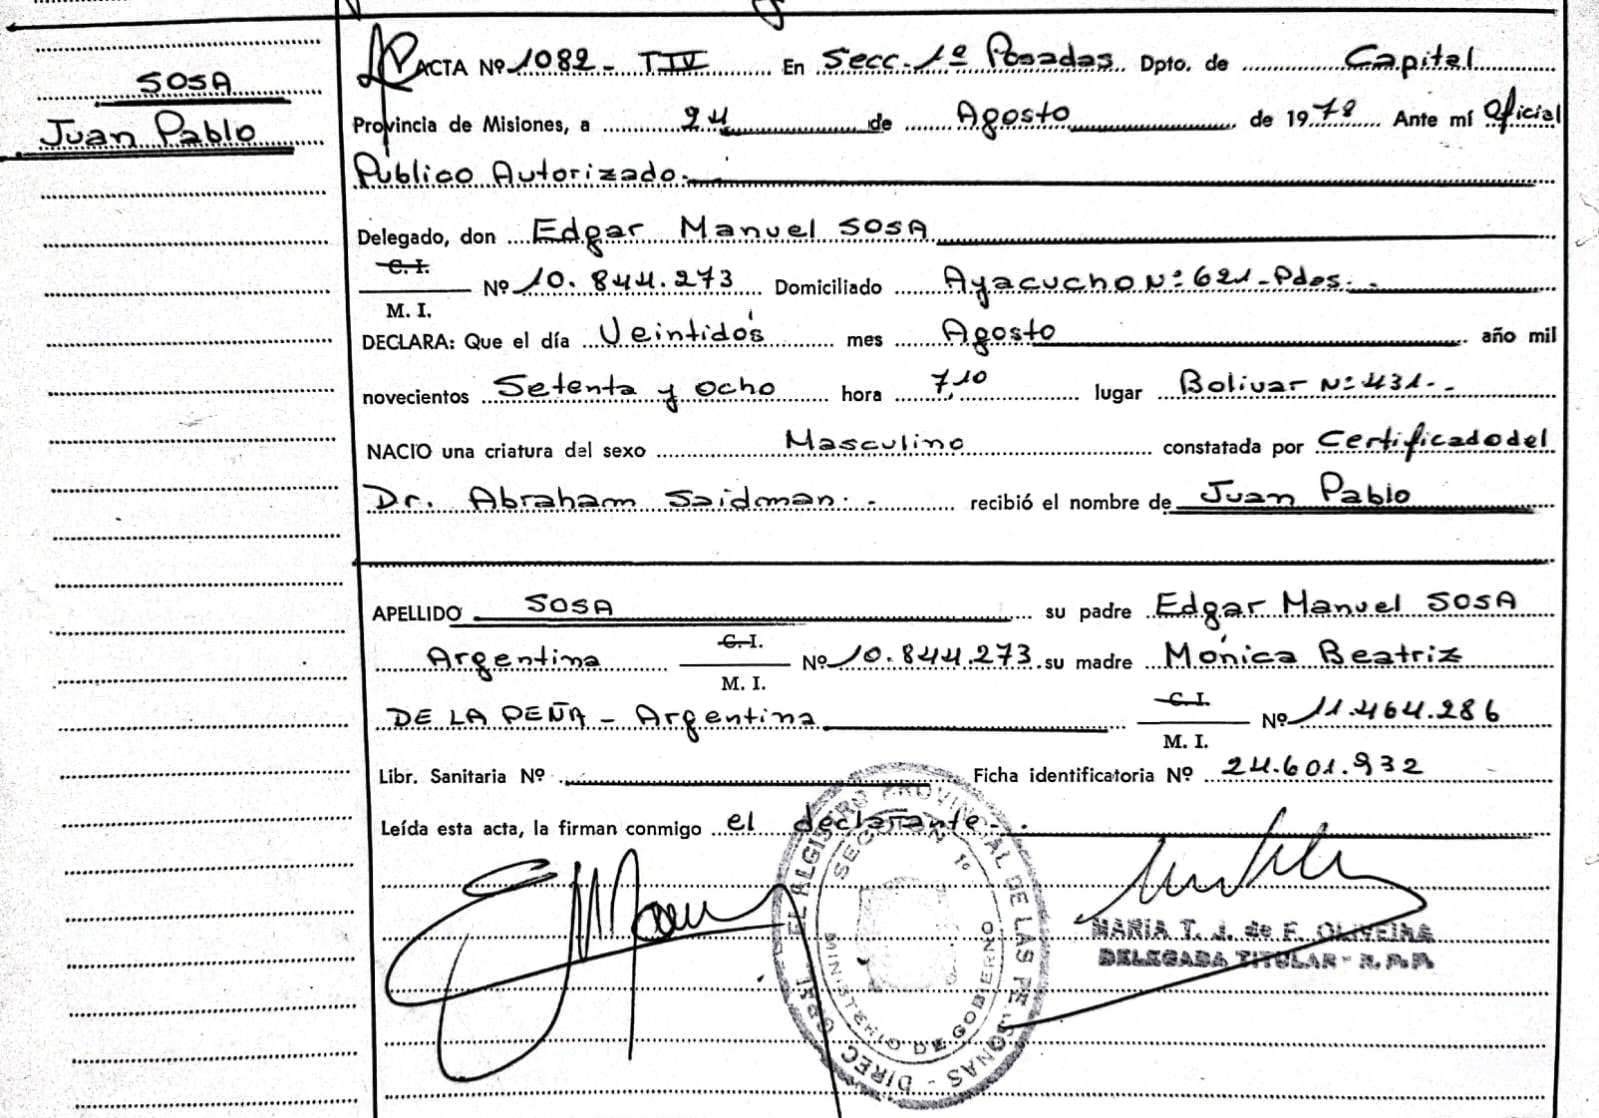 SOSA
Juan Pablo
ACTA Nº 1082 - TIV En Secc. 1º Posadas Dpto. de Capital
Provincia de Misiones, a 24 de Agosto de 1978 Ante mí Oficial
Público Autorizado.-
Delegado, don Edgar Manuel SOSA
C. I.
Nº 10.844.273 Domiciliado Ayacucho Nº 621 - Pdas. -
M. I.
DECLARA: Que el día Veintidós mes Agosto año mil
novecientos Setenta y ocho hora 7,10 lugar Bolivar Nº 431.-
NACIO una criatura del sexo Masculino constatada por Certificado del
Dr. Abraham Saidman. - recibió el nombre de Juan Pablo
APELLIDO SOSA su padre Edgar Manuel SOSA
C. I.
Argentina Nº 10.844.273 su madre Mónica Beatriz
M. I.
C. I.
DE LA PEÑA - Argentina Nº 11.464.286
M. I.
Libr. Sanitaria Nº Ficha identificatoria Nº 24.601.932
Leída esta acta, la firman conmigo el declarante. -
REGISTRO PROVINCIAL DE LAS PERSONAS - DIREC
SECCION 1º
MINISTERIO DE GOBIERNO
MARIA T. J. de F. OLIVEIRA
DELEGADA TITULAR - R.P.P.